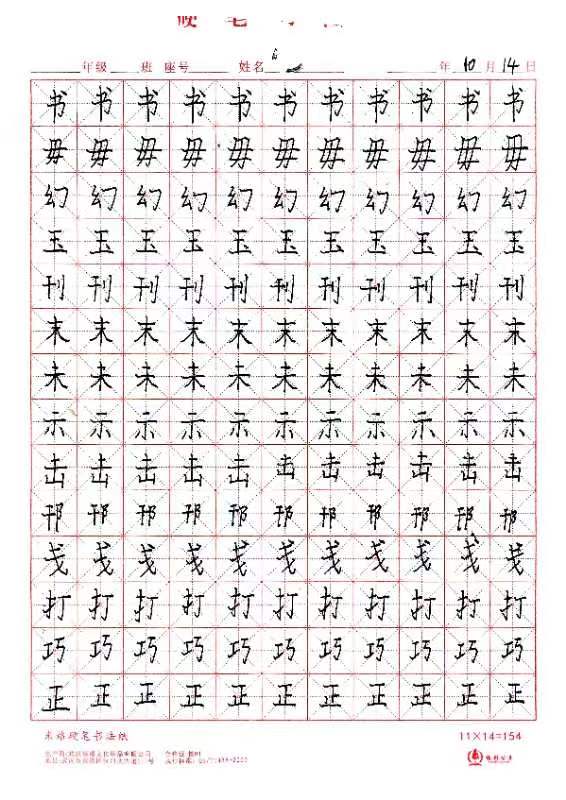 硬笔书法
年级 班 座号 姓名 年 10 月 14 日
书 书 书 书 书 书 书 书 书 书 书
毋 毋 毋 毋 毋 毋 毋 毋 毋 毋 毋
幻 幻 幻 幻 幻 幻 幻 幻 幻 幻 幻
玉 玉 玉 玉 玉 玉 玉 玉 玉 玉 玉
刊 刊 刊 刊 刊 刊 刊 刊 刊 刊 刊
末 末 末 末 末 末 末 末 末 末 末
未 未 未 未 未 未 未 未 未 未 未
示 示 示 示 示 示 示 示 示 示 示
击 击 击 击 击 击 击 击 击 击 击
邗 邗 邗 邗 邗 邗 邗 邗 邗 邗 邗
戋 戋 戋 戋 戋 戋 戋 戋 戋 戋 戋
打 打 打 打 打 打 打 打 打 打 打
巧 巧 巧 巧 巧 巧 巧 巧 巧 巧 巧
正 正 正 正 正 正 正 正 正 正 正
硬笔书法纸 11×14=154